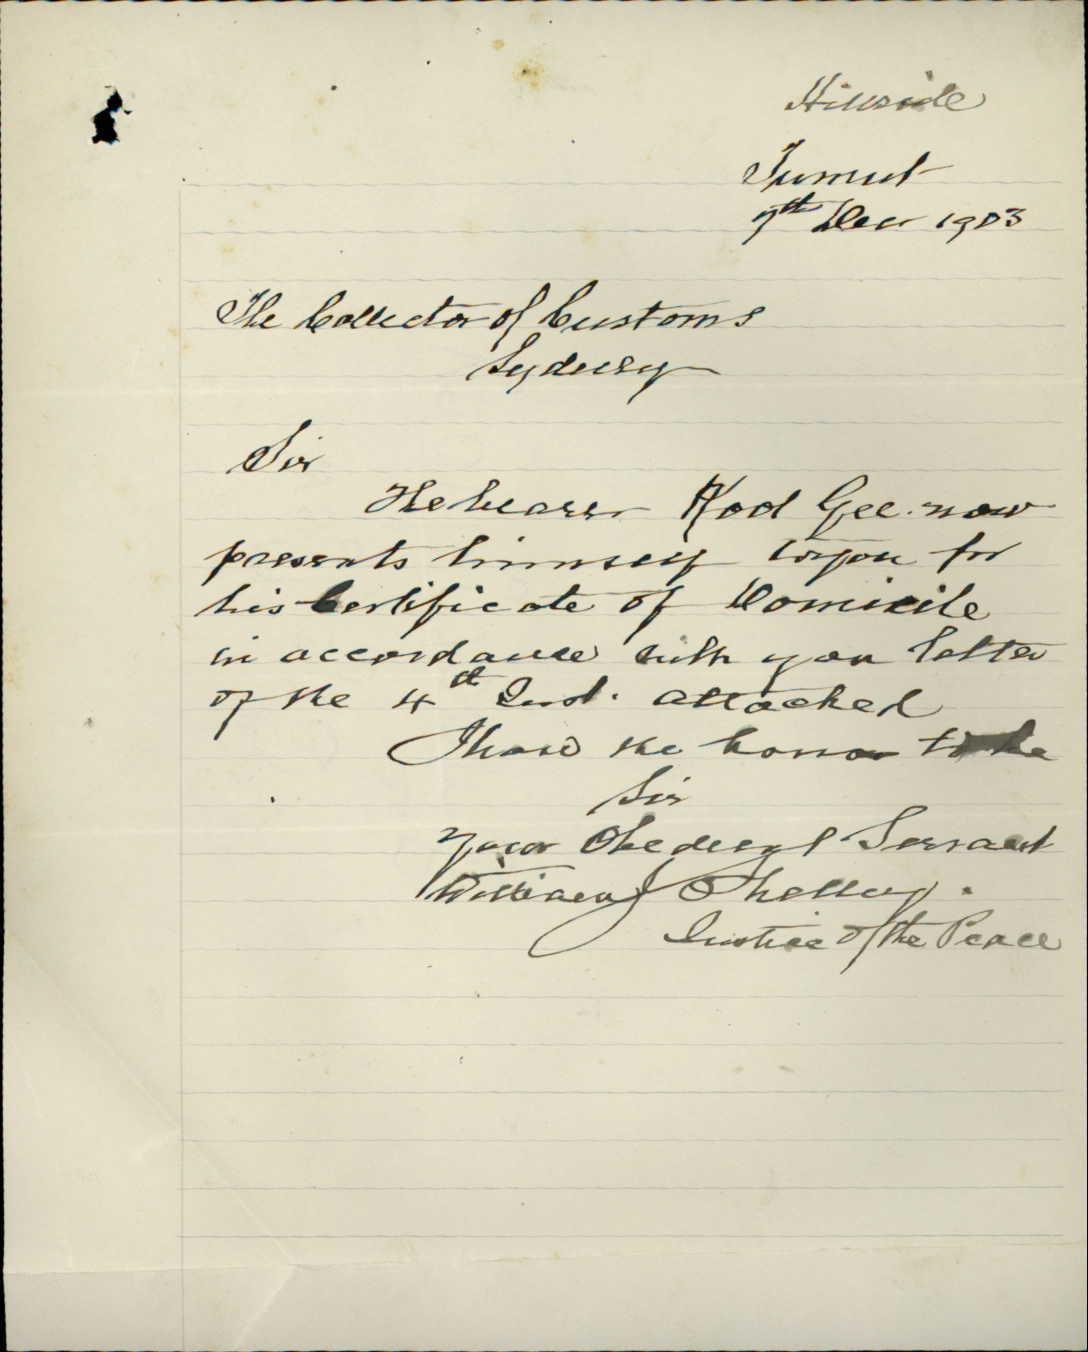 Hillside
Tumut
7th Dec 1903
The Collector of Customs
Sydney
Sir
The bearer Hod Gee now
presents himself to you for
his Certificate of Domicile
in accordance with you letter
of the 4th Inst. attached
I have the honor to be
Sir
Your Obedient Servant
William J Shelley.
Justice of the Peace